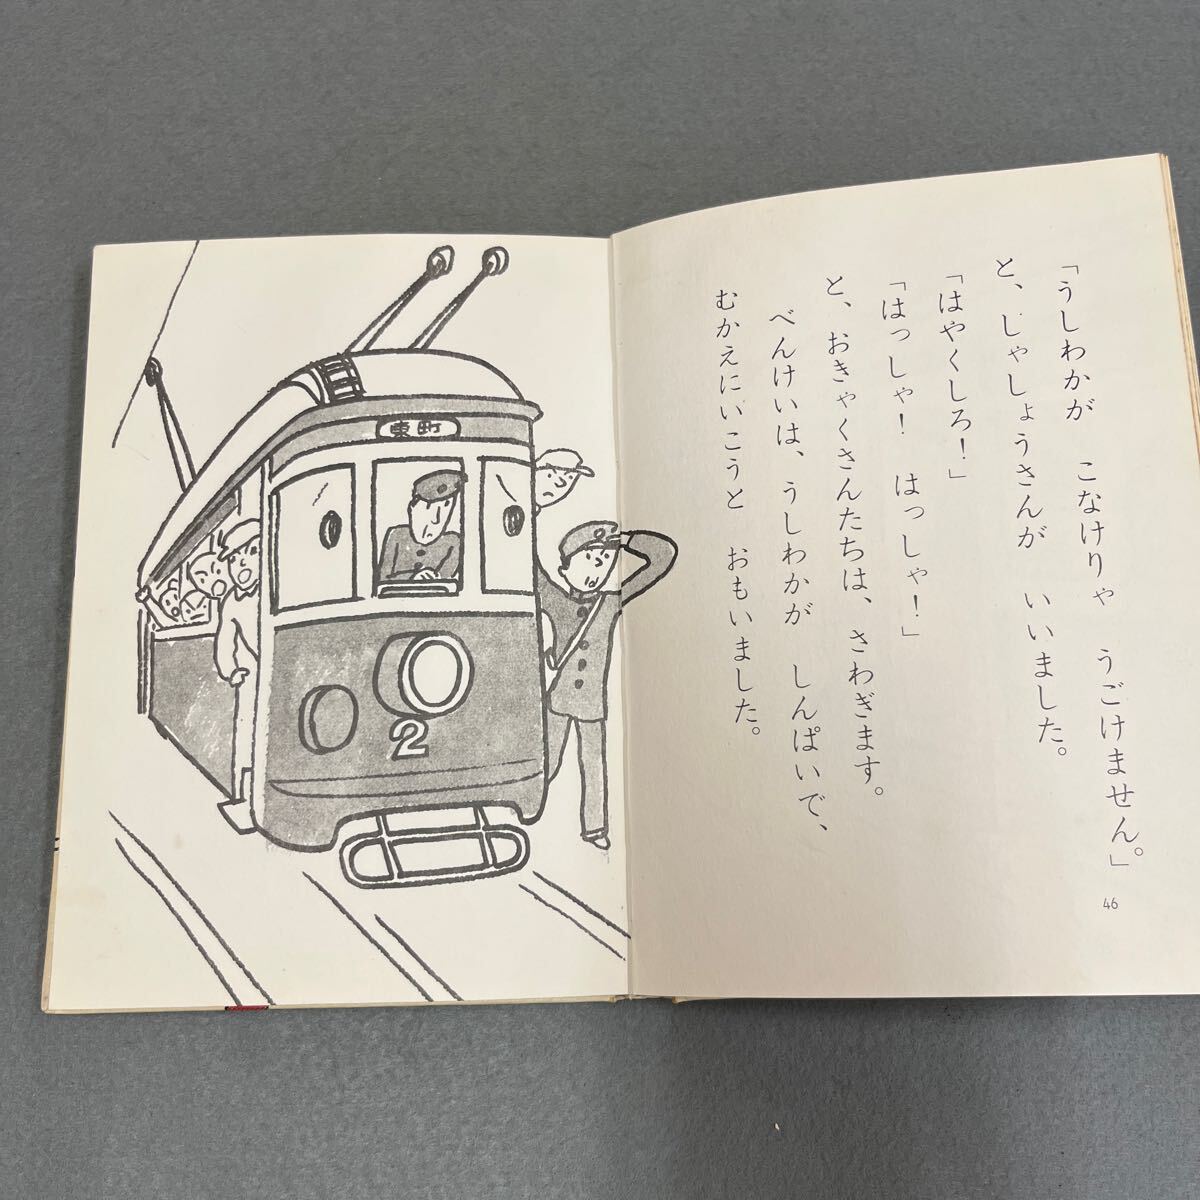 「うしわかが　こなけりゃ　うごけません。」
と、しゃしょうさんが　いいました。
「はやくしろ！」
「はっしゃ！　はっしゃ！」
と、おきゃくさんたちは、さわぎます。
べんけいは、うしわかが　しんぱいで、
むかえにいこうと　おもいました。
46
東町
2